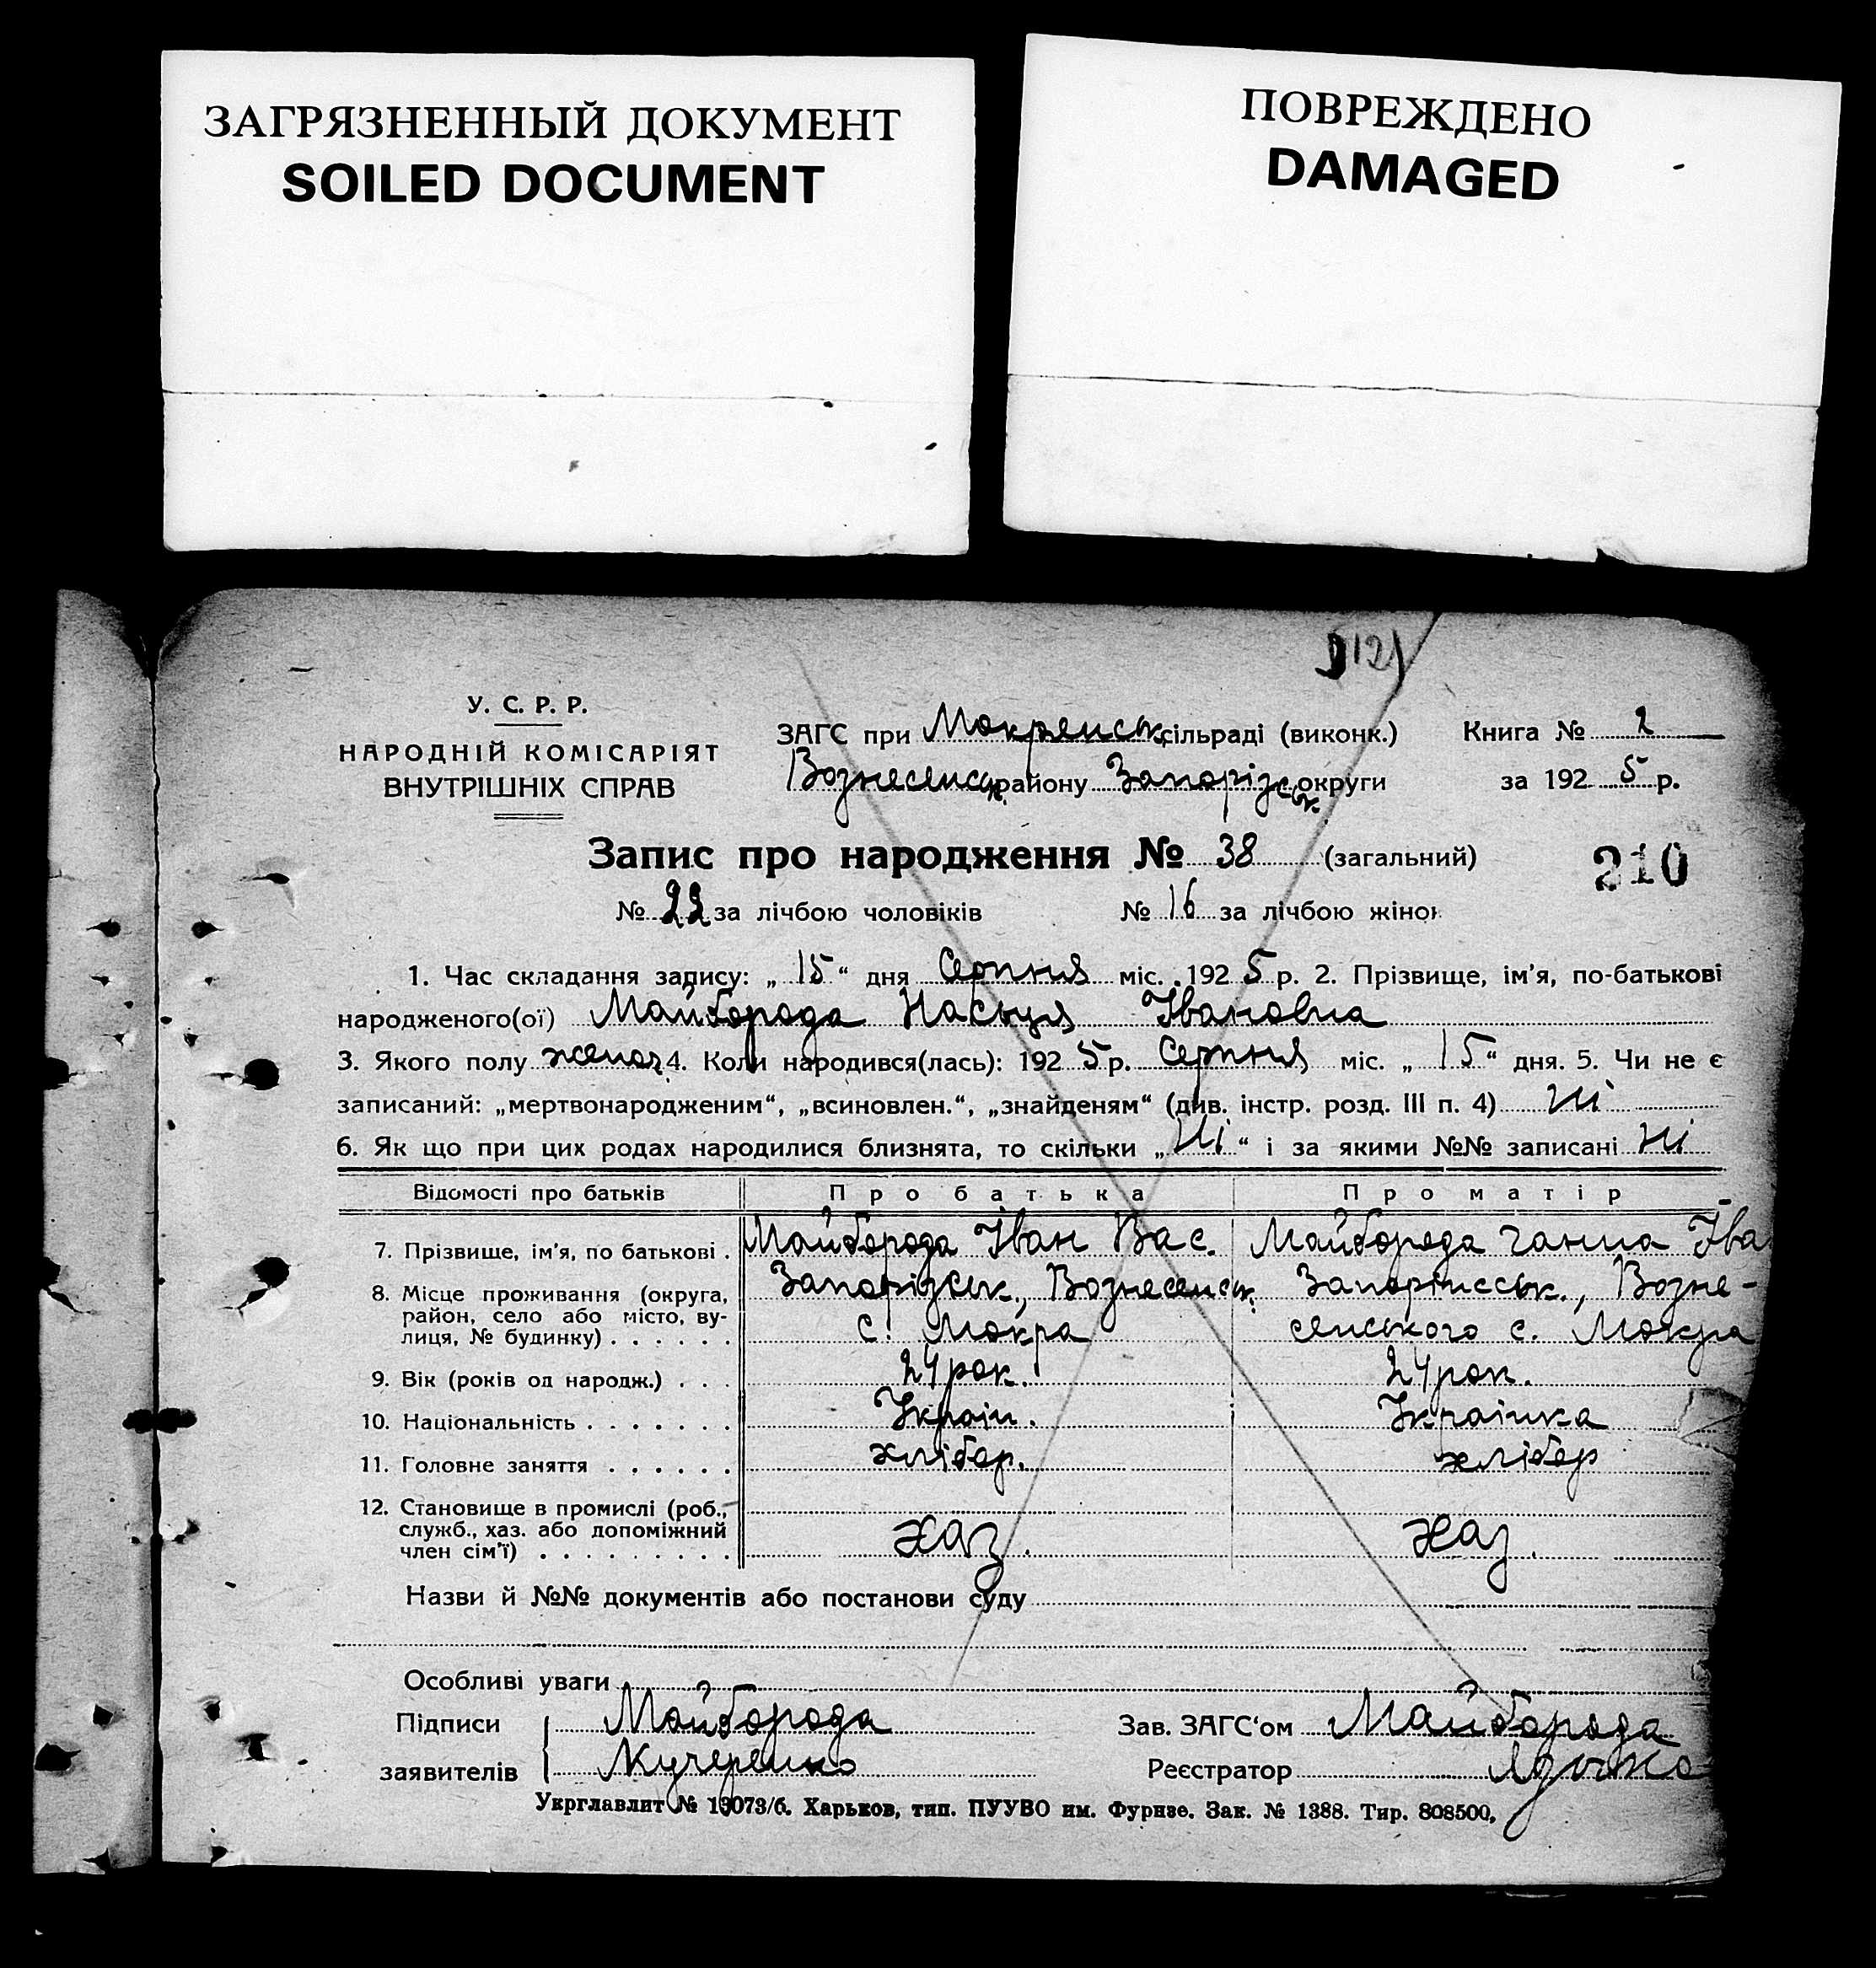 ЗАГРЯЗНЕННЫЙ ДОКУМЕНТ
SOILED DOCUMENT
ПОВРЕЖДЕНО
DAMAGED
У. С. Р. Р.
НАРОДНІЙ КОМІСАРІЯТ
ВНУТРІШНІХ СПРАВ
ЗАГС при Мокрянськ. сільраді (виконк.)
Вознесенськ. району Запорізськ округи
Книга № 2
за 192 5 р.
Запис про народження № 38 (загальний)
210
№ 22 за лічбою чоловіків № 16 за лічбою жінок
1. Час складання запису: „ 15 “ дня Серпня міс. 192 5 р. 2. Прізвище, ім'я, по-батькові
народженого(ої) Майборода Насьця Івановна
3. Якого полу жіноч 4. Коли народився(лась): 192 5 р. Серпня міс. „ 15 “ дня. 5. Чи не є
записаний: „мертвонародженим“, „всиновлен.“, „знайденям“ (див. інстр. розд. III п. 4) Ні
6. Як що при цих родах народилися близнята, то скільки „ Ні “ і за якими №№ записані Ні
Відомості про батьків Про батька Про матір
7. Прізвище, ім'я, по батькові . Майборода Іван Вас. Майборода Ганна Іва
8. Місце проживання (округа, Запорізськ., Вознесенськ. Запоріжськ., Возне-
район, село або місто, ву- с. Мокра сенського с. Мокра
лиця, № будинку) . . . . . .
9. Вік (років од народж.) . . . 24 рок. 24 рок.
10. Національність . . . . . . . Україн. Українка
11. Головне заняття . . . . . . хлібор. хлібор
12. Становище в промислі (роб.,
служб., хаз. або допоміжний хаз. хаз.
член сім'ї) . . . . . . . . .
Назви й №№ документів або постанови суду
Особливі уваги
Підписи Майборода Зав. ЗАГС‘ом Майборода
заявителів Кучеренко Реєстратор
Укрглавлит № 13073/б. Харьков, тип. ПУУВО им. Фрунзе. Зак. № 1388. Тир. 808500.